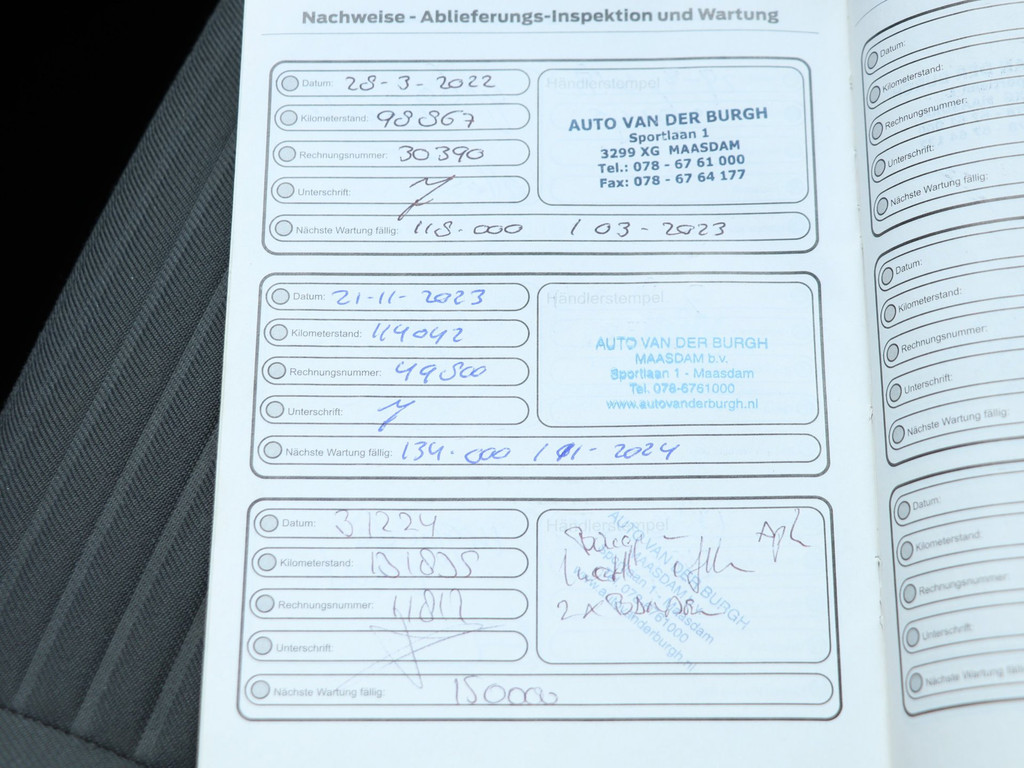 Nachweise - Ablieferungs-Inspektion und Wartung
Datum: 28-3-2022
Kilometerstand: 98367
Rechnungsnummer: 30390
Unterschrift:
Nächste Wartung fällig: 118.000 / 03-2023
Händlerstempel
AUTO VAN DER BURGH
Sportlaan 1
3299 XG MAASDAM
Tel.: 078 - 67 61 000
Fax: 078 - 67 64 177
Datum: 21-11-2023
Kilometerstand: 114042
Rechnungsnummer: 49800
Unterschrift:
Nächste Wartung fällig: 134.000 / 11-2024
Händlerstempel
AUTO VAN DER BURGH
MAASDAM b.v.
Sportlaan 1 - Maasdam
Tel. 078-6761000
www.autovanderburgh.nl
Datum: 31224
Kilometerstand: 131835
Rechnungsnummer:
Unterschrift:
Nächste Wartung fällig: 150000
Händlerstempel
AUTO VAN DER BURGH
MAASDAM
Sportlaan 1 - Maasdam
078-6761000
www.autovanderburgh.nl
2x
Datum:
Kilometerstand:
Rechnungsnummer:
Unterschrift:
Nächste Wartung fällig:
Datum:
Kilometerstand:
Rechnungsnummer:
Unterschrift:
Nächste Wartung fällig:
Datum:
Kilometerstand:
Rechnungsnummer:
Unterschrift:
Nächste Wartung fällig